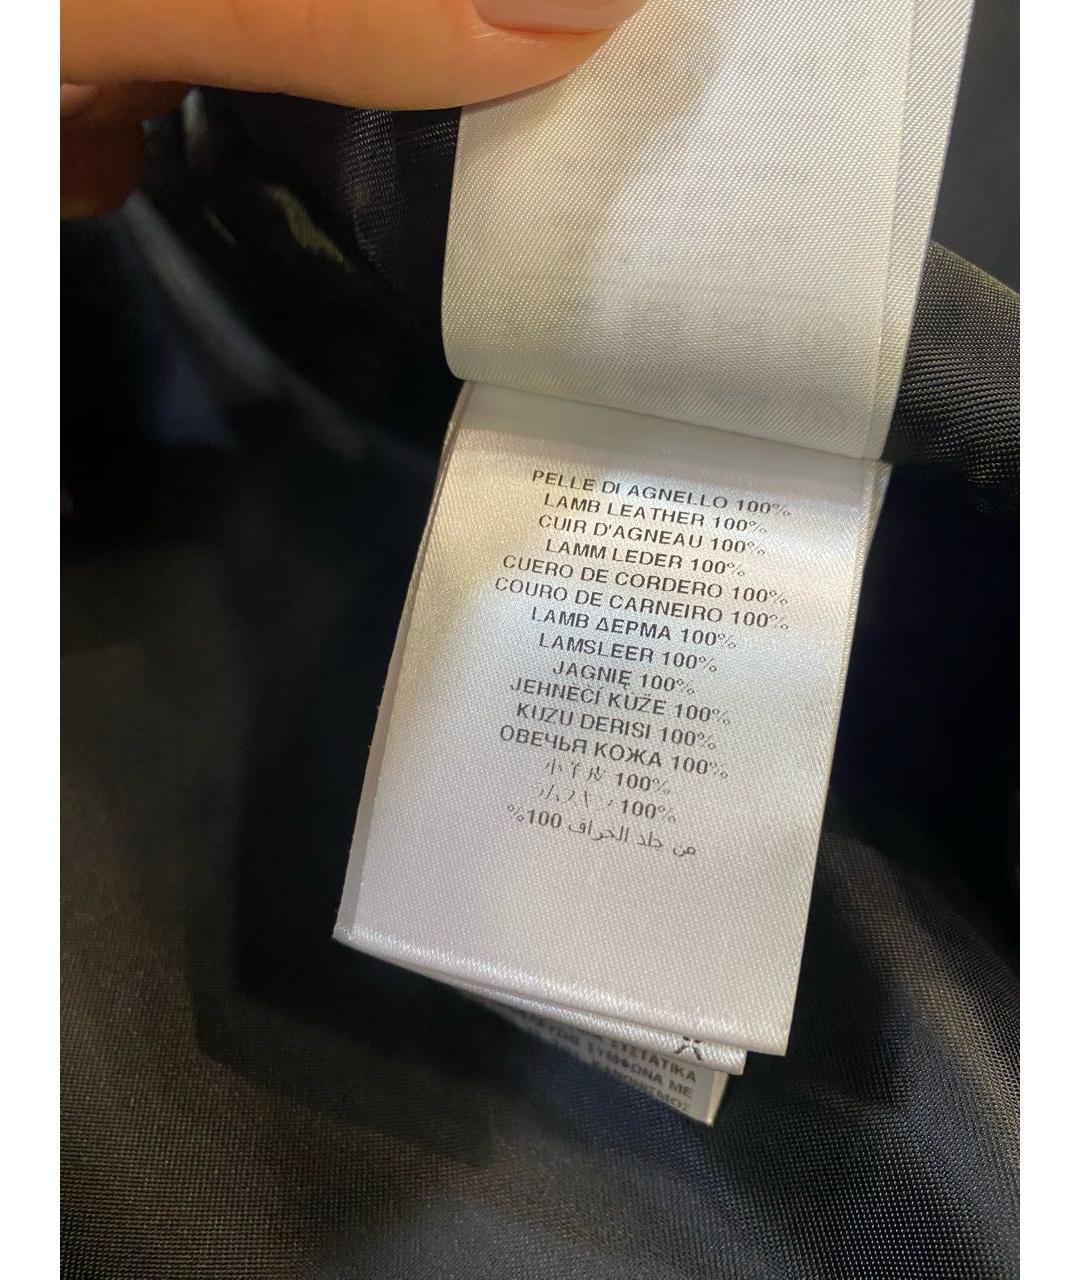 PELLE DI AGNELLO 100%
LAMB LEATHER 100%
CUIR D'AGNEAU 100%
LAMM LEDER 100%
CUERO DE CORDERO 100%
COURO DE CARNEIRO 100%
LAMB ΔΕΡΜΑ 100%
LAMSLEER 100%
JAGNIĘ 100%
JEHNECI KUŽE 100%
KUZU DERISI 100%
ОВЕЧЬЯ КОЖА 100%
小羊皮 100%
100%
من جلد الخراف 100%
ΣΥΣΤΑΤΙΚΑ
ΣΥΜΦΩΝΑ ΜΕ